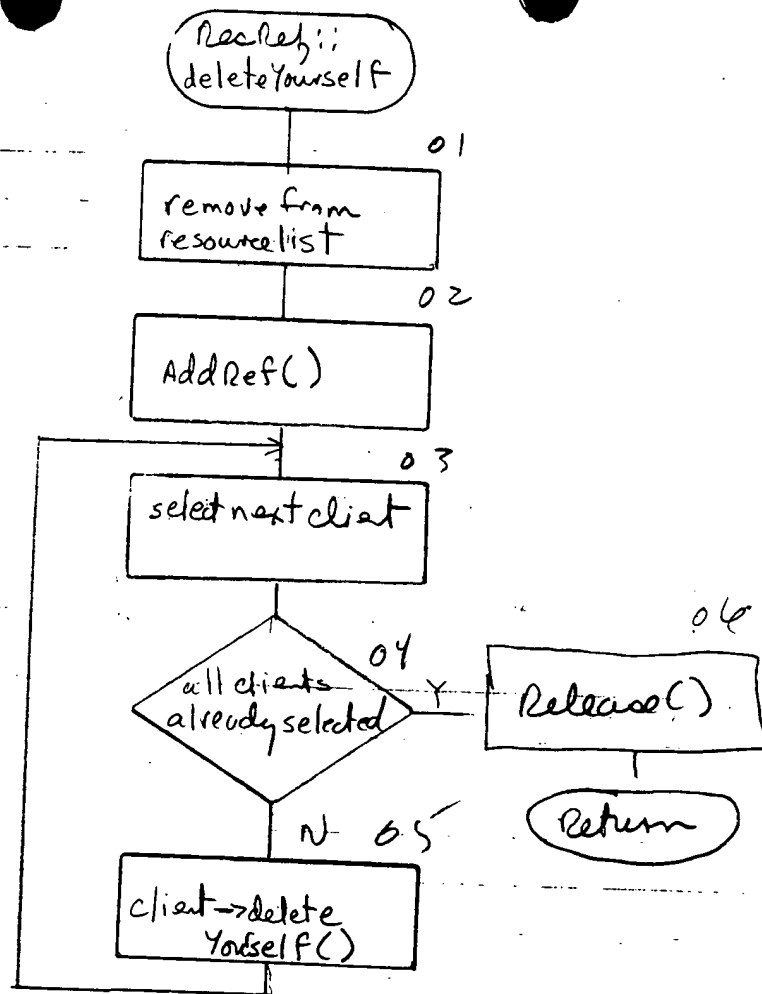 RecRef::
deleteYourself
01
remove from
resource list
02
AddRef()
03
select next client
04
all clients
already selected
Y
06
Release()
Return
N
05
client->delete
Yourself()